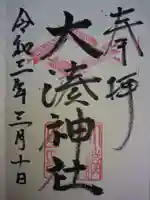 奉拝
大湊神社
令和二年三月十日